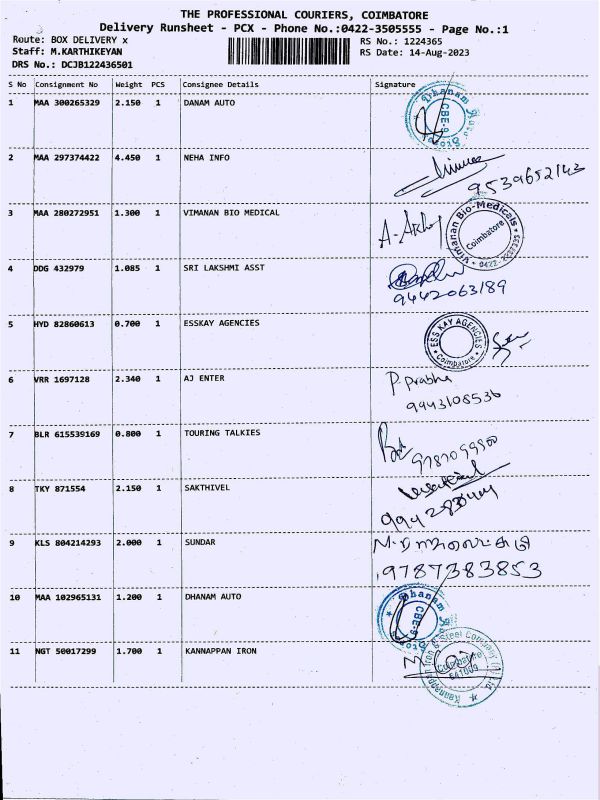 THE PROFESSIONAL COURIERS, COIMBATORE
Delivery Runsheet - PCX - Phone No.:0422-3505555 - Page No.:1
Route: BOX DELIVERY x
RS No.: 1224365
Staff: M.KARTHIKEYAN
RS Date: 14-Aug-2023
DRS No.: DCJB122436501
S No Consignment No Weight PCS Consignee Details Signature
1 MAA 300265329 2.150 1 DANAM AUTO
Dhanam Auto
CBE-9
2 MAA 297374422 4.450 1 NEHA INFO
9539652143
3 MAA 280272951 1.300 1 VIMANAN BIO MEDICAL
Vimanan Bio-Medicals
Coimbatore
4 DDG 432979 1.085 1 SRI LAKSHMI ASST
9442063189
5 HYD 82860613 0.700 1 ESSKAY AGENCIES
ESS KAY AGENCIES
Coimbatore
6 VRR 1697128 2.340 1 AJ ENTER
P. Prabha
9943108536
7 BLR 615539169 0.800 1 TOURING TALKIES
8 TKY 871554 2.150 1 SAKTHIVEL
9 KLS 804214293 2.000 1 SUNDAR
9787383853
10 MAA 102965131 1.200 1 DHANAM AUTO
Dhanam Auto
CBE-9
11 NGT 50017299 1.700 1 KANNAPPAN IRON
Kannappan Iron & Steel Company (P) Ltd
Coimbatore
641009